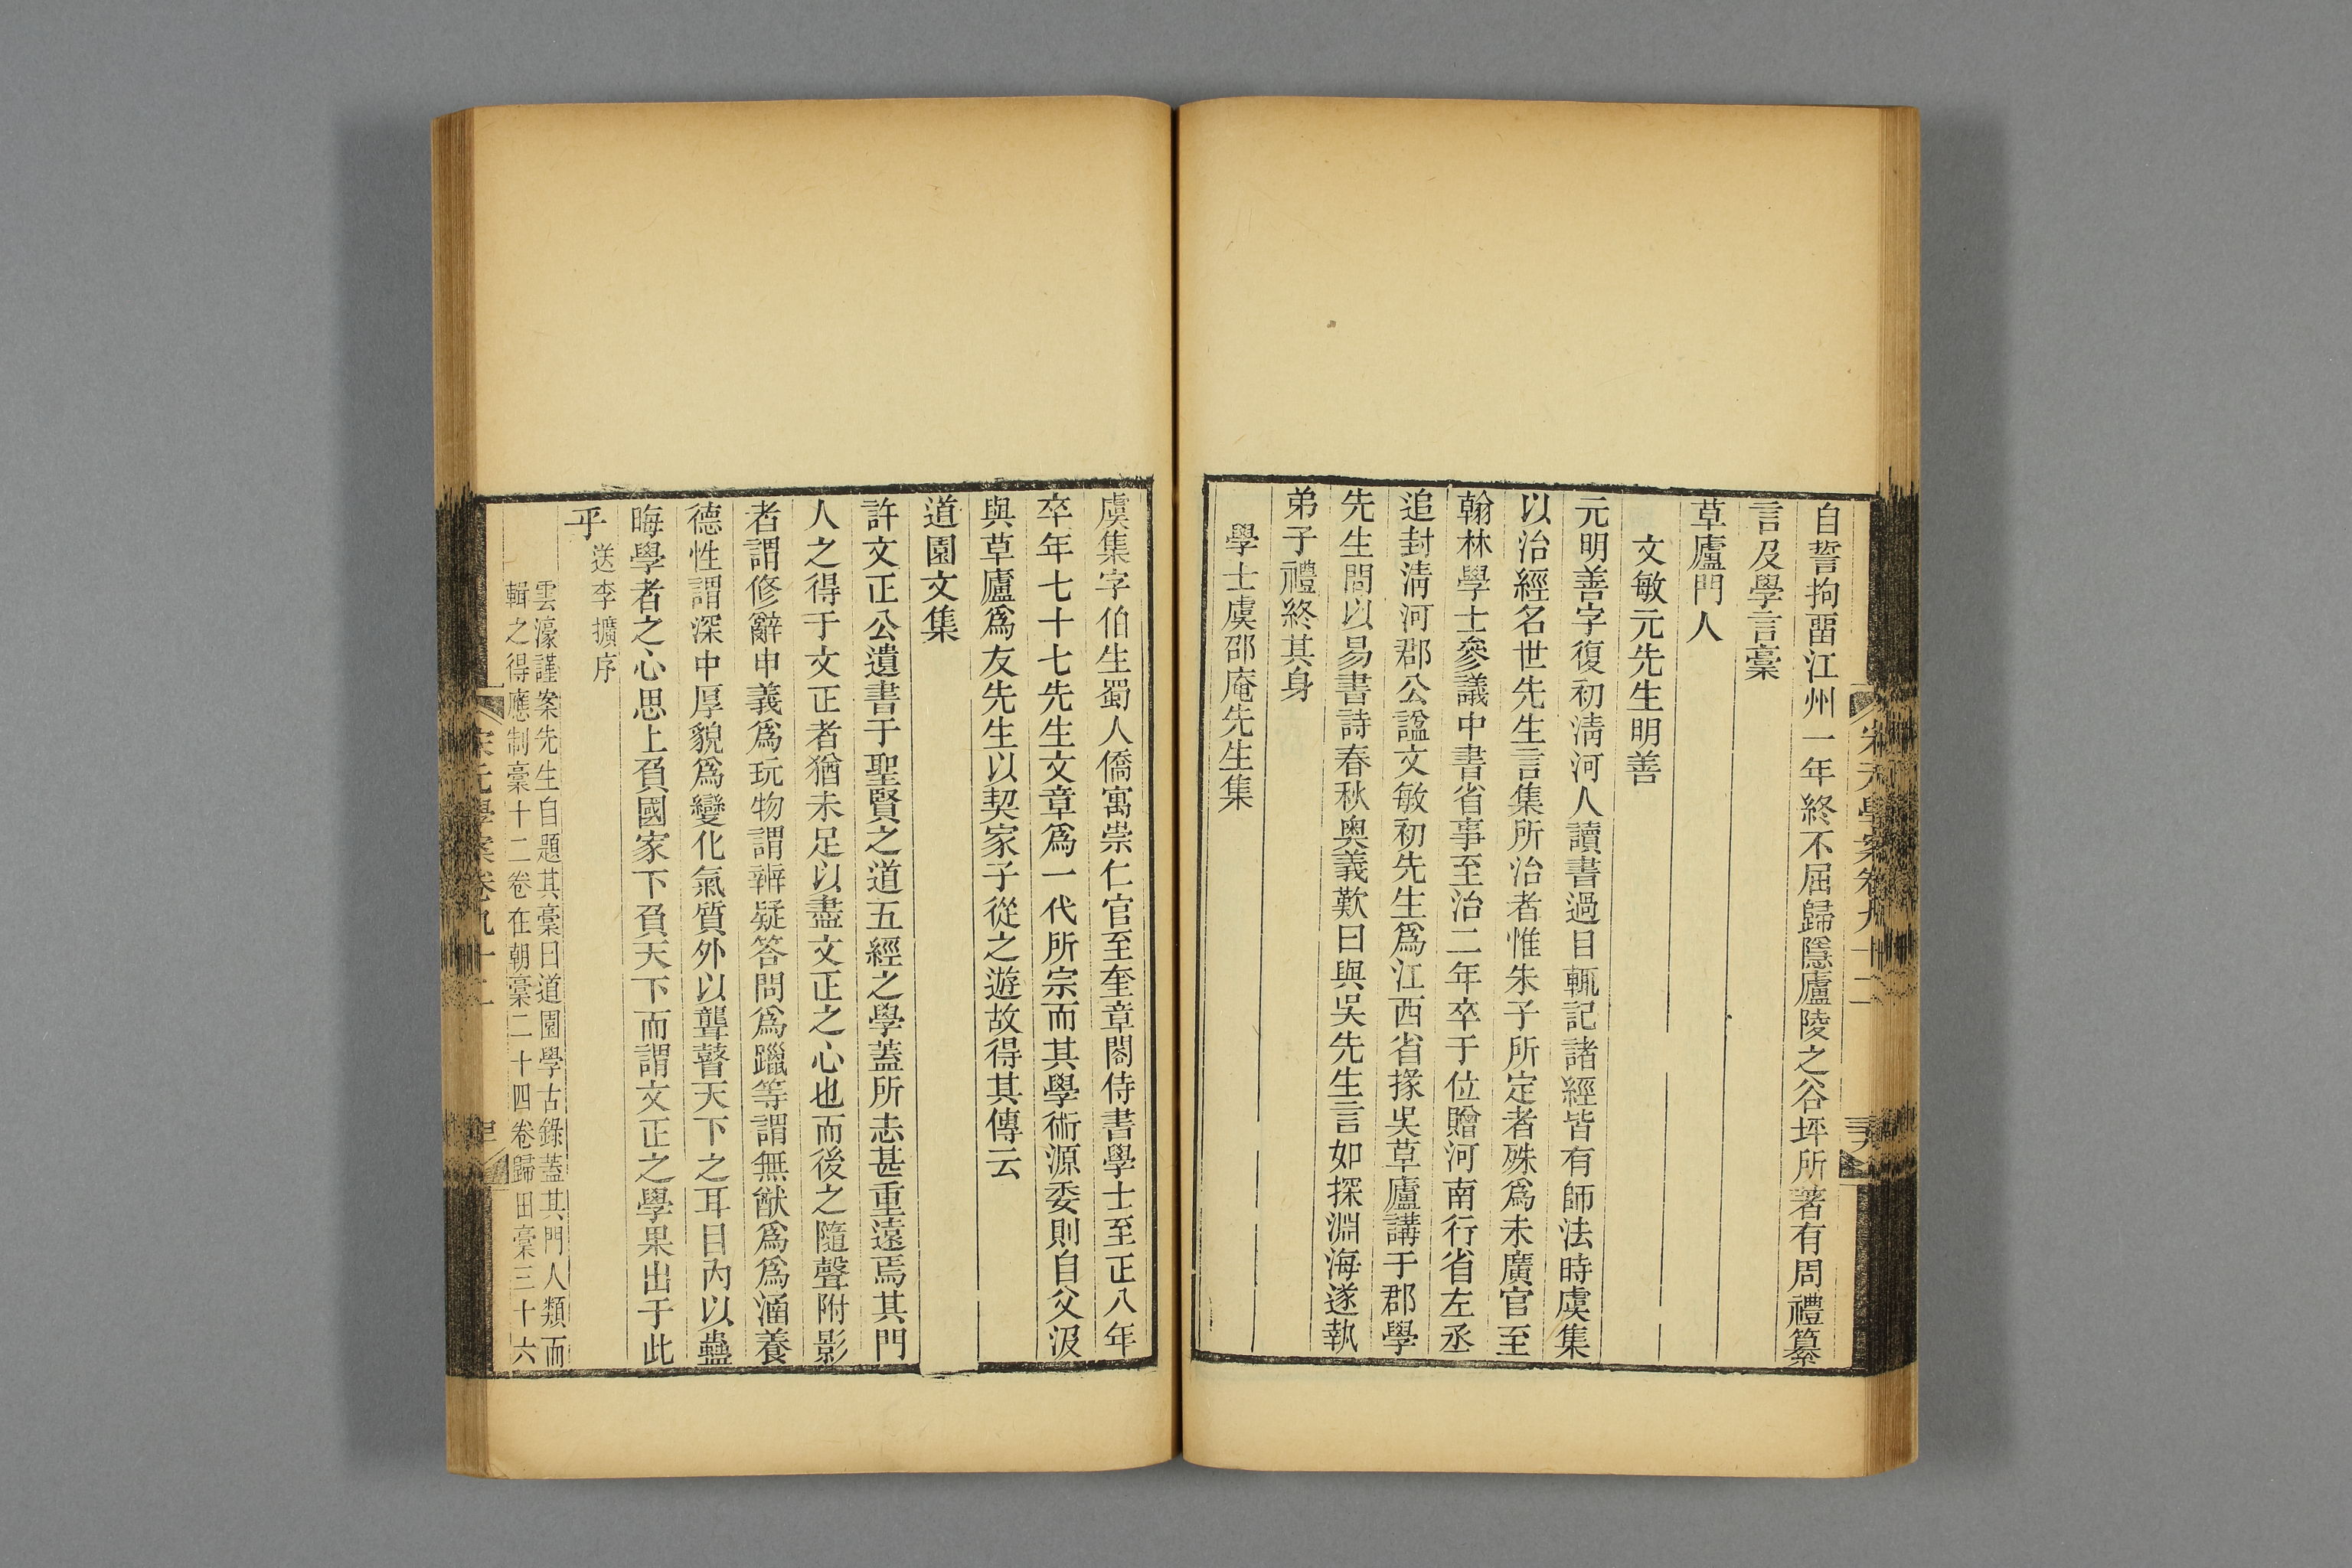 自誓拘畱江州一年終不屈歸隱廬陵之谷坪所著有周禮纂
言及學言稾
草廬門人
文敏元先生明善
元明善字復初淸河人讀書過目輒記諸經皆有師法時虞集
以治經名世先生言集所治者惟朱子所定者殊爲未廣官至
翰林學士參議中書省事至治二年卒于位贈河南行省左丞
追封淸河郡公諡文敏初先生爲江西省掾吳草廬講于郡學
先生問以易書詩春秋奧義歎曰與吳先生言如探淵海遂執
弟子禮終其身
學士虞邵庵先生集
宋元學案卷九十二
虞集字伯生蜀人僑寓崇仁官至奎章閣侍書學士至正八年
卒年七十七先生文章爲一代所宗而其學術源委則自父汲
與草廬爲友先生以契家子從之遊故得其傳云
道園文集
許文正公遺書于聖賢之道五經之學蓋所志甚重遠焉其門
人之得于文正者猶未足以盡文正之心也而後之隨聲附影
者謂修辭申義爲玩物謂辨疑答問爲躐等謂無猷爲爲涵養
德性謂深中厚貌爲變化氣質外以聾瞽天下之耳目內以蠱
晦學者之心思上負國家下負天下而謂文正之學果出于此
乎送李擴序
雲濠謹案先生自題其稾曰道園學古錄蓋其門人類而
輯之得應制稾十二卷在朝稾二十四卷歸田稾三十六
宋元學案卷九十二